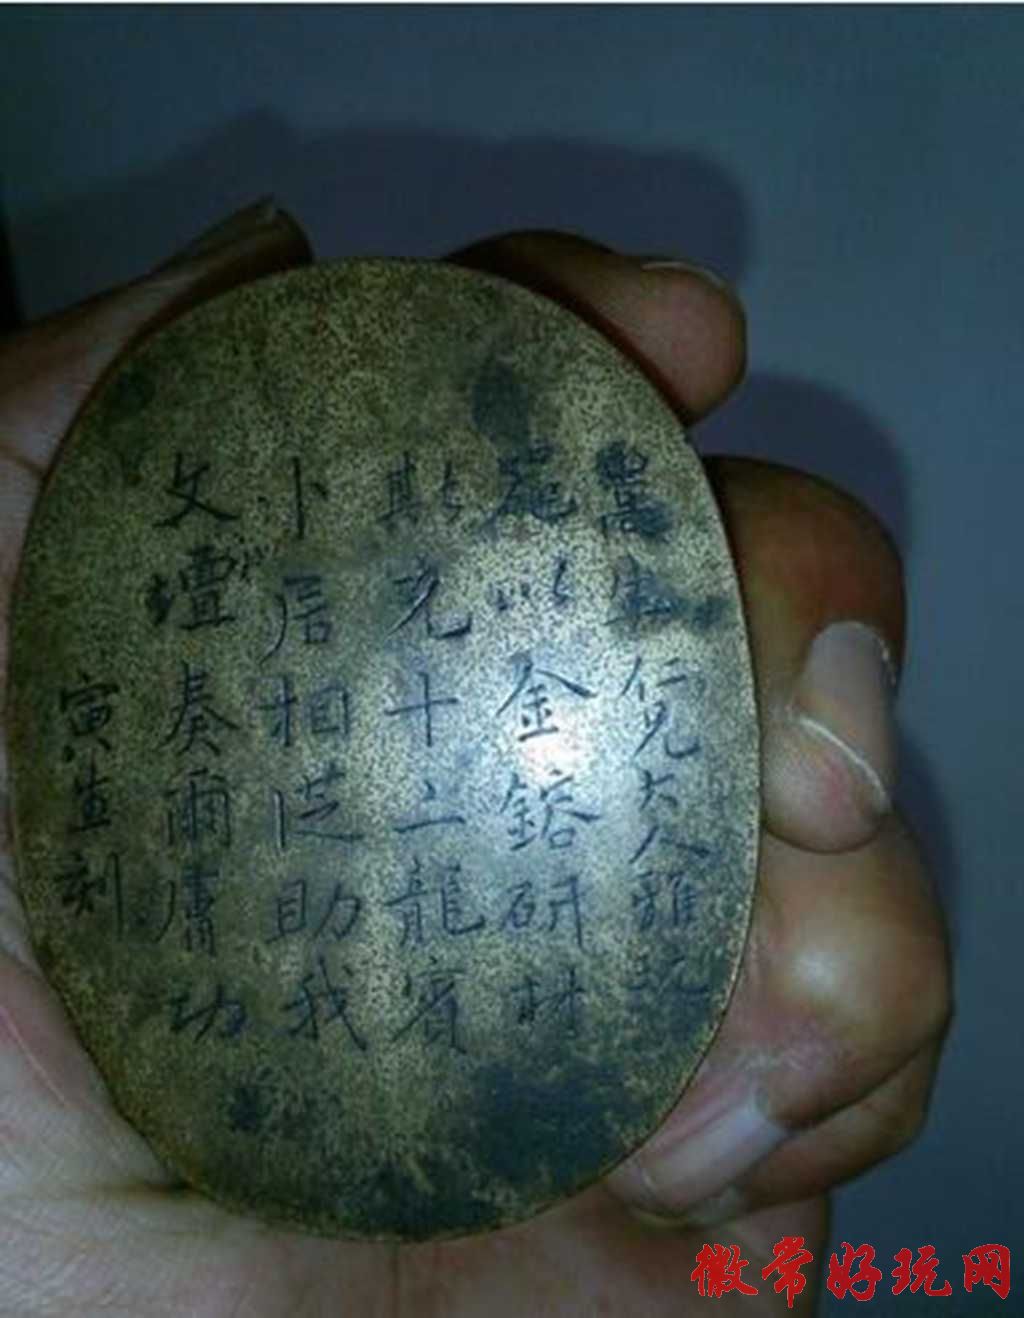 農生仁兄大人雅玩
範以金鎔研材
斯充十二龍賓
卜居相從助我
文壇奏爾膚功
寅生刻
徽常好玩网